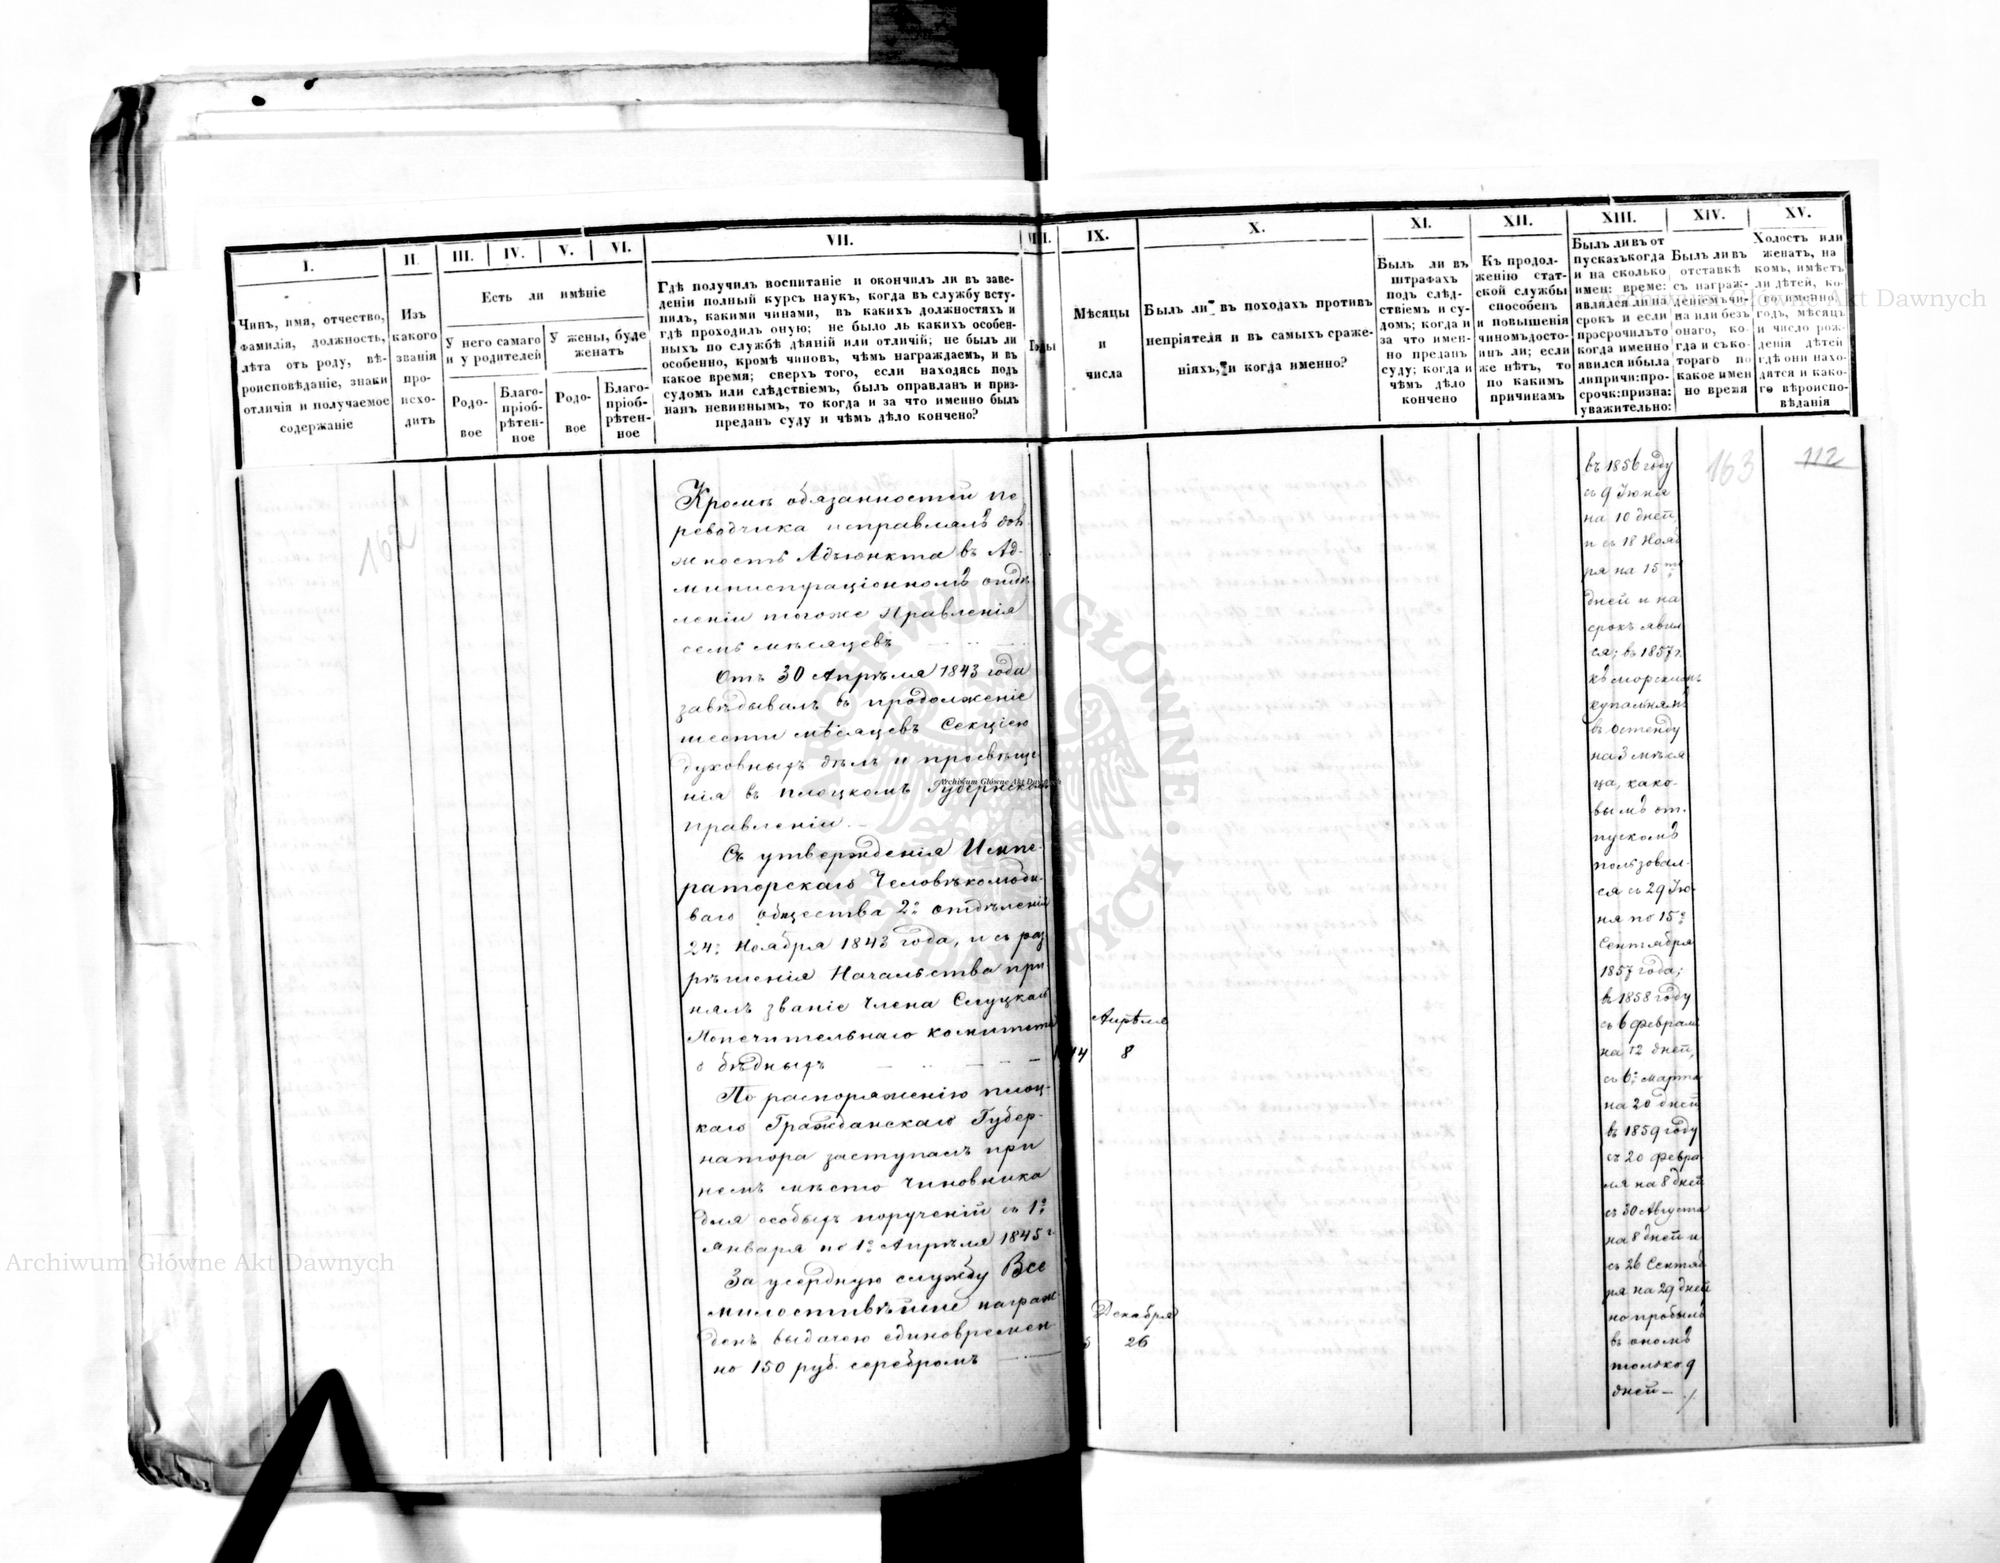 I.
II.
III.
IV.
V.
VI.
VII.
VIII.
IX.
X.
XI.
XII.
XIII.
XIV.
XV.
Чинъ, имя, отчество,
фамилія, должность,
лѣта отъ роду, вѣ-
роисповѣданіе, знаки
отличія и получаемое
содержаніе
Изъ
какого
званія
про-
исхо-
дитъ
Есть ли имѣніе
У него самаго
и у родителей
У жены, буде
женатъ
Родо-
вое
Благо-
пріоб-
рѣтен-
ное
Родо-
вое
Благо-
пріоб-
рѣтен-
ное
Гдѣ получилъ воспитаніе и окончилъ ли въ заве-
деніи полный курсъ наукъ, когда въ службу всту-
пилъ, какими чинами, въ какихъ должностяхъ и
гдѣ проходилъ оную; не было ль какихъ особен-
ныхъ по службѣ дѣяній или отличій; не былъ ли
особенно, кромѣ чиновъ, чѣмъ награждаемъ, и въ
какое время; сверхъ того, если находясь подъ
судомъ или слѣдствіемъ, былъ оправланъ и приз-
нанъ невиннымъ, то когда и за что именно былъ
преданъ суду и чѣмъ дѣло кончено?
Годы
Мѣсяцы
и
числа
Былъ ли въ походахъ противъ
непріятеля и въ самыхъ сраже-
ніяхъ, и когда именно?
Былъ ли въ
штрафахъ
подъ слѣд-
ствіемъ и су-
домъ; когда и
за что имен-
но преданъ
суду; когда и
чѣмъ дѣло
кончено
Къ продол-
женію стат-
ской службы
способенъ
и повышенія
чиномъ досто-
инъ ли; если
же нѣтъ, то
по какимъ
причинамъ
Былъ ли въ от
пускахъ когда
и на сколько
имен: време:
являлся ли на
срокъ и если
просрочилъ то
когда именно
явился и была
ли причи: про-
сроч: призна:
уважительно:
Былъ ли въ
отставкѣ
съ награж-
деніемъ чи-
на или безъ
онаго, ко-
гда и съ ко-
тораго по
какое имен
но время
Холостъ или
женатъ, на
комъ, имѣетъ
ли дѣтей, ко-
го именно,
годъ, мѣсяцъ
и число рож-
денія дѣтей
гдѣ они нахо-
дятся и како-
го вѣроиспо-
вѣданія
162
Кромѣ обязанностей пе
реводчика исправлялъ дол
жность Адъюнкта въ Ад-
министраціонномъ отдѣ
леніи тогоже Правленія
семь мѣсяцевъ
Отъ 30 Апрѣля 1843 года
завѣдывалъ въ продолженіе
шести мѣсяцевъ Секціею
духовныхъ дѣлъ и просвѣще
нія въ Плоцкомъ Губернскомъ
правленіи. –
Съ утвержденія Импе-
раторскаго Человѣколюби-
ваго общества 2го отдѣленія
24: Ноября 1843 года, и съ раз
рѣшенія Начальства при-
нялъ званіе Члена Слуцкаго
Попечительнаго комитета
о бѣдныхъ
По распоряженію плоц-
каго Гражданскаго Губер-
натора заступалъ при
немъ мѣсто Чиновника
для особыхъ порученій съ 1го
Января по 1е Апрѣля 1845 г.
За усердную службу Все
милостивѣйше награж
денъ выдачею единовремен-
но 150 руб. серебромъ
Апрѣля
8
Декабря
26
въ 1856 году
съ 9 Іюня
на 10 дней,
и съ 18 Нояб
ря на 15ть
дней и на
срокъ явил
ся; въ 1857 г.
къ морскимъ
купальнямъ
въ Остенду
на 3 мѣся
ца, како-
вымъ от-
пускомъ
пользовал-
ся съ 29 Iю-
ня по 15е
Сентября
1857 года;
въ 1858 году
съ 6 Февраля
на 12 дней,
съ 6го Марта
на 20 дней
въ 1859 году
съ 20 Февра
ля на 8 дней
съ 30 Августа
на 8 дней и
съ 26 Сентяб
ря на 29 дней
но пробылъ
въ ономъ
только 9
дней –
163
112
Archiwum Główne Akt Dawnych
Archiwum Główne Akt Dawnych
Archiwum Główne Akt Dawnych
ARCHIWUM GŁÓWNE AKT DAWNYCH